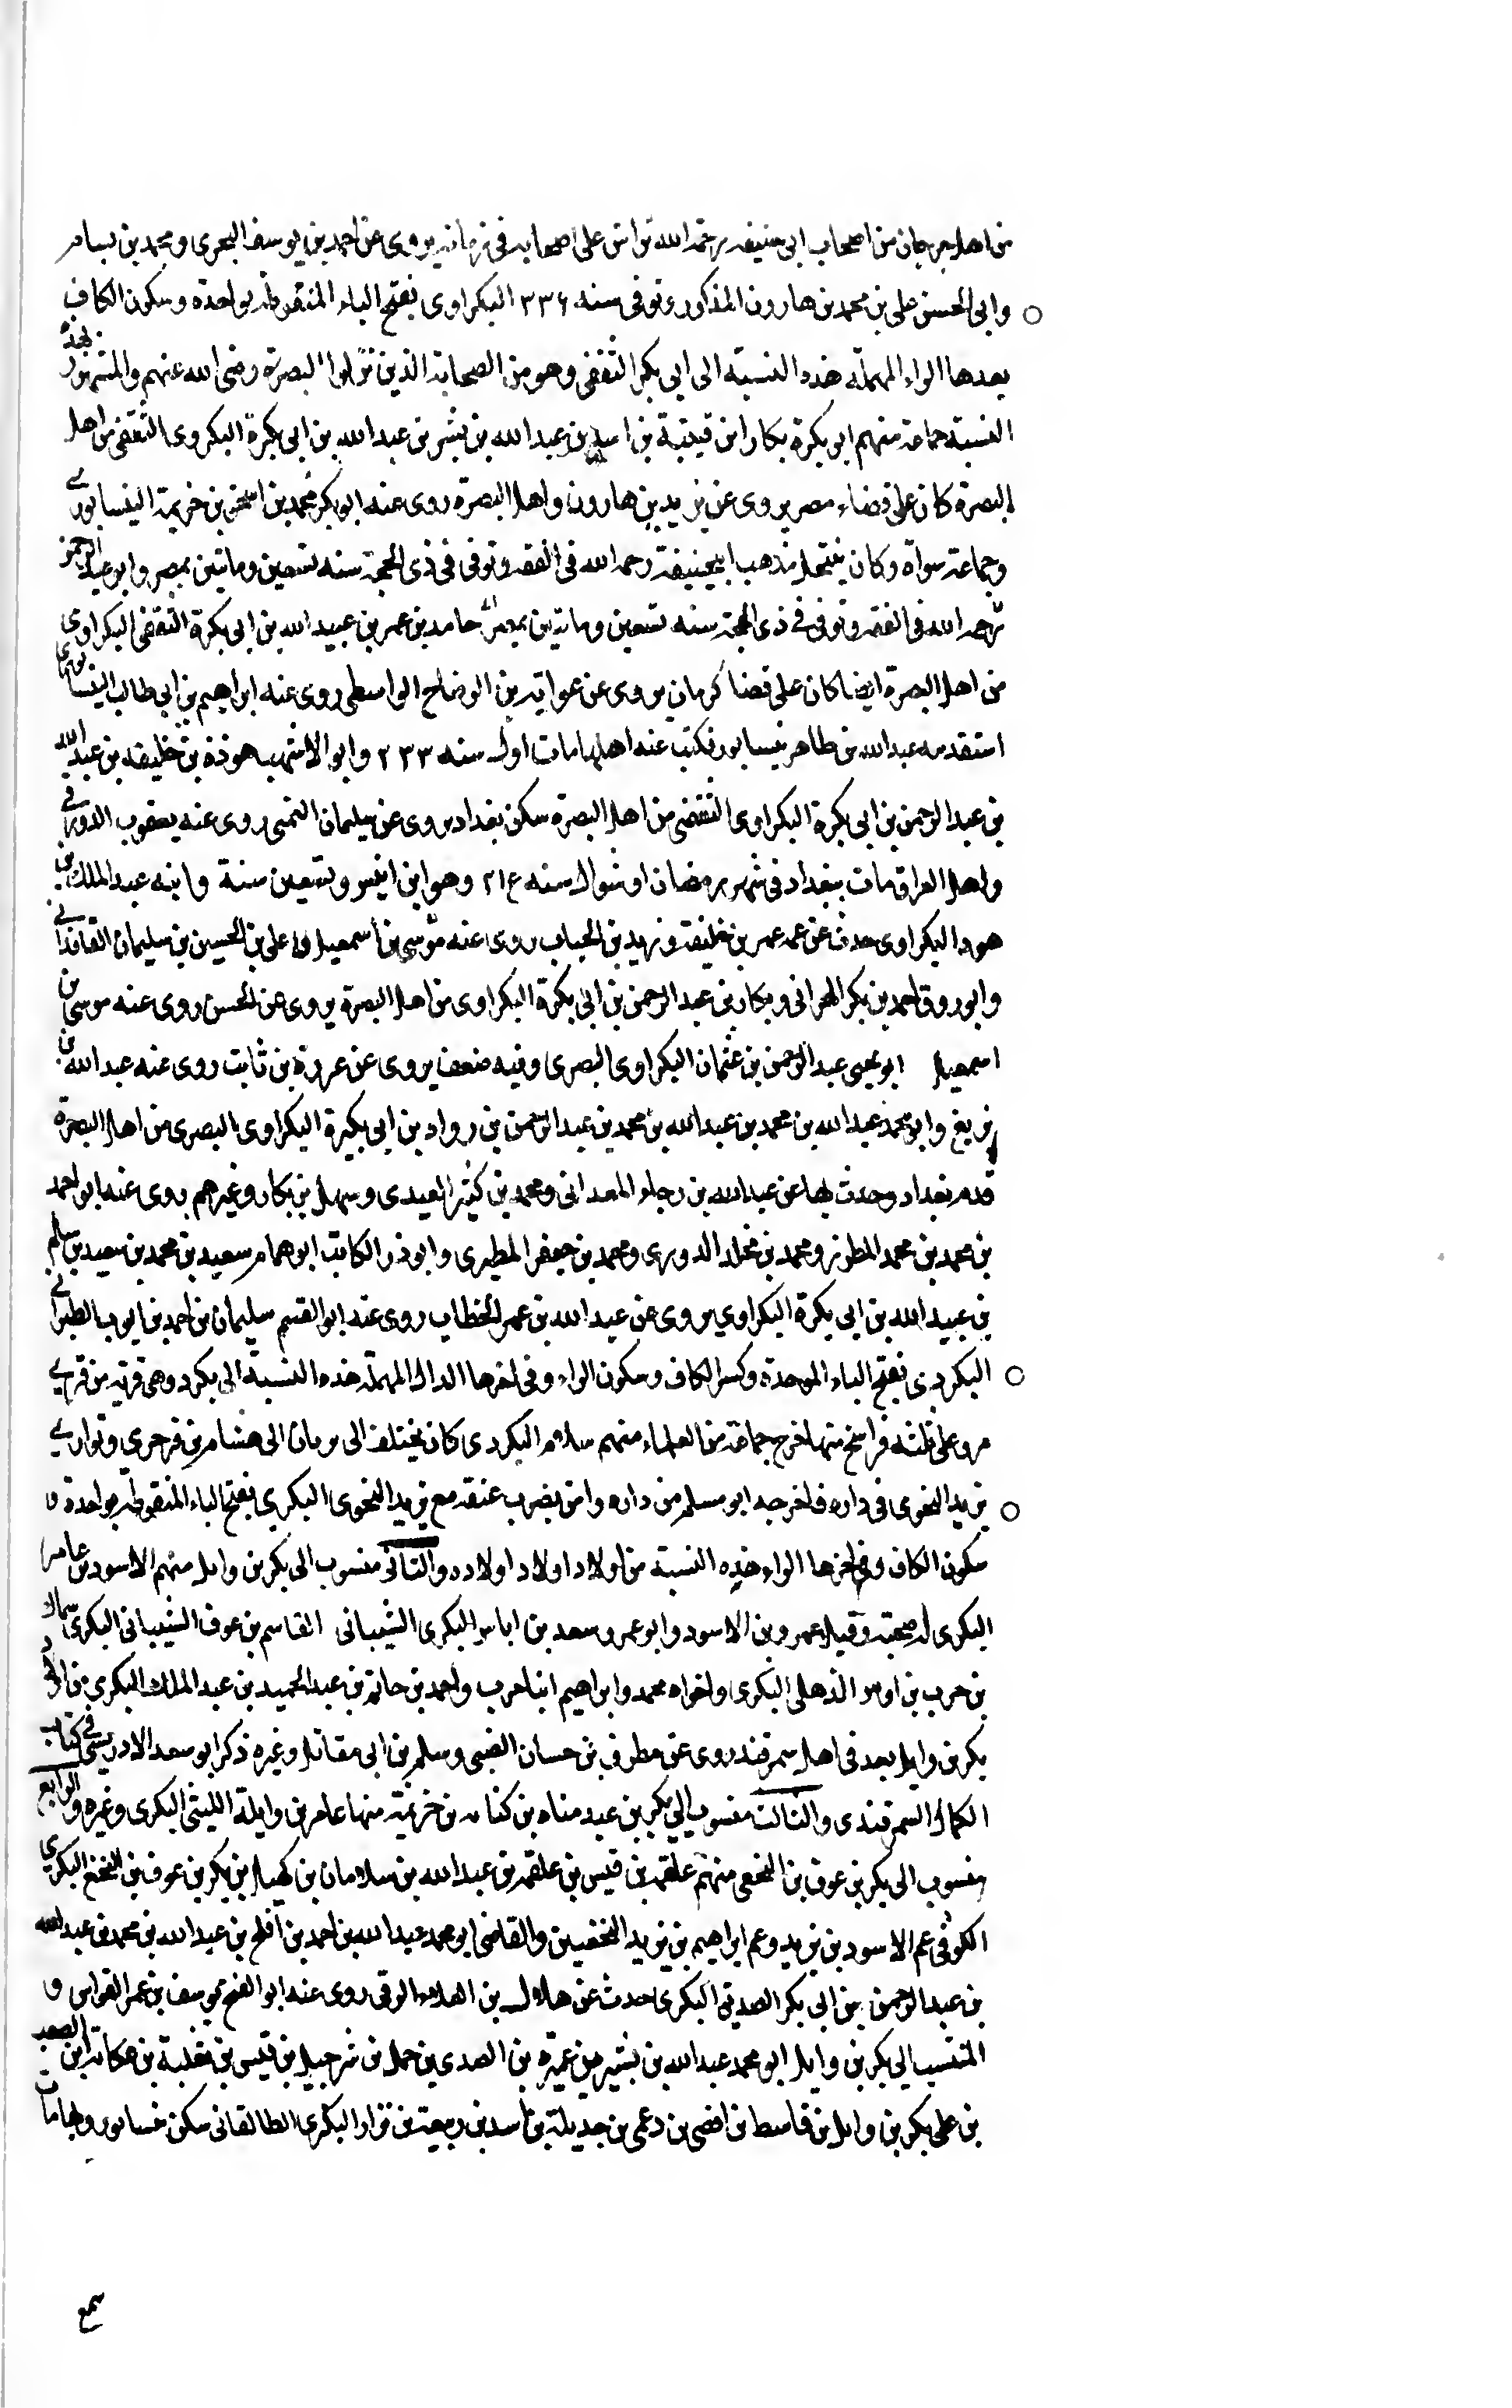 من اهل جرجان من اصحاب ابى حنيفه رحمه الله تراش على اصحابه فى زمانه يروى عن احمد بن يوسف البحرى ومحمد بن بسام
وابى الحسن على بن محمد بن هارون المذكور وتوفى سنه ٣٣٤ البكراوى بفتح الباء المنقوطه بواحدة وسكون الكاف
بعدها الراء المهملة هذه النسبة الى ابى بكر الثقفى وهو من الصحابة الذين نزلوا البصرة رضى الله عنهم والمشهور بهذه
النسبة جماعة منهم ابو بكرة بكار ابن قتيبة بن اسد بن عبد الله بن بشر بن عبد الله بن ابى بكرة البكروى الثقفى من اهل
البصرة كان على قضاء مصر يروى عن يزيد بن هارون واهل البصرة روى عنه ابو بكر محمد بن اسحق بن خزيمة النيسابورى
وجماعة سواه وكان ينتحل مذهب ابيحنيفة رحمه الله فى الفقه وتوفى فى ذى الحجة سنه تسعين ومائتين بمصر وابو عبد الرحمن
رحمه الله فى الفقه وتوفى فى ذى الحجة سنه تسعين وماتين بمصر حامد بن عمر بن عبيد الله بن ابى بكرة الثقفى البكراوى
من اهل البصرة ايضا كان على قضا كرمان يروى عن عوانه بن الوضاح الواسطى روى عنه ابراهيم بن ابى طالب النيسابورى
استقدمه عبد الله بن طاهر نيسابور فكتب عنه اهلها مات اول سنه ٢٣٣ وابو الاشهب هوذة بن خليفه بن عبد الله
بن عبد الرحمن بن ابى بكرة البكراوى الثقفى من اهل البصرة سكن بغداد يروى عن سليمان التيمى روى عنه يعقوب الدورقى
واهل العراق مات ببغداد فى شهر رمضان او شوال سنه ٢١٤ وهو ابن اثنين وتسعين سنة وابنه عبد الملك بن
هوذ البكراوى حدث عن عمه عمر بن خليفة وزيد بن الحباب روى عنه موسى بن اسمعيل و على بن الحسين بن سليمان القافلانى
وابو روق احمد بن بكر الهزانى وبكار بن عبد الرحمن بن ابى بكرة البكراوى من اهل البصرة يروى عن الحسن روى عنه موسى بن
اسمعيل ابو يحيى عبد الرحمن بن عثمان البكراوى البصرى وفيه ضعف يروى عن عروة بن ثابت روى عنه عبد الله بن
بزيغ وابو محمد عبد الله بن محمد بن عبد الله بن محمد بن عبد الرحمن بن رواد بن ابى بكيرة البكراوى البصرى من اهل البصرة
قدم بغداد وحدث بها عن عبد الله بن رجاء الغدانى ومحمد بن كثير العبدى وسهل بن بكار وغيرهم روى عنه ابو احمد
بن محمد بن محمد المطرز ومحمد بن مخلد الدورى ومحمد بن جعفر المطيرى وابو ذر الكاتب ابو همام سعيد بن محمد بن سعيد بن سلم
بن عبيد الله بن ابى بكرة البكراوى يروى عن عبد الله بن عمر الخطاب روى عنه ابو القسم سليمان بن احمد بن ايوب الطبرانى
البكردى بفتح الباء الموحدة وكسر الكاف وسكون الراء وفى اخرها الدال المهملة هذه النسبة الى بكرد وهى قرية من قرى
مرو على ثلثه فراسخ منها خرج جماعة من العلماء منهم سلام البكردى كان يختلف الى مرمان الى هشام بن فرحرى وتوارى
يزيد النحوى فى داره فاخرجه ابو مسلم من داره وامر بضرب عنقه مع يزيد النحوى البكرى بفتح الباء المنقوطه بواحدة و
سكون الكاف وفى اخرها الراء هذه النسبة من اولاد اولاد اولاده والثانى منسوب الى بكر بن وايل منهم الاسود بن عامر
البكرى له صحبة وقيل عمرو بن الاسود وابو عمرو سعد بن اياس البكرى الشيبانى القاسم بن عوف الشيبانى البكرى سماك
بن حرب بن اوس الذهلى البكرى واخواه محمد وابراهيم ابنا حرب واحمد بن حاتم بن عبد الحميد بن عبد الملك البكرى من
بكر بن وايل يعد فى اهل سمرقند روى عن مطرف بن حسان الضبى وسلم بن ابى مقاتل وغيره ذكر ابو سعد الادريسى فى كتاب
الكمال السمرقندى والثالث منسوب الى بكر بن عبد مناه بن كنانه بن خزيمة منها عامر بن وايلة الليثى البكرى وغيره والرابع
منسوب الى بكر بن عوف بن النخعى منهم علقمه بن قيس بن علقمه بن عبد الله بن سلامان بن كهيل بن بكر بن عوف بن النخع البكرى
الكوفى عم الاسود بن يزيد وعم ابراهيم بن يزيد النخعيين والقاضى ابو محمد عبد الله بن احمد بن افلح بن عبد الله بن محمد بن عبد الله
بن عبد الرحمن بن ابى بكر الصديق البكرى حدث عن هلال بن العلاء الرقى روى عنه ابو الفتح يوسف بن عمر القواس و
المنتسب الى بكر بن وايل ابو محمد عبد الله بن بشير بن عميرة بن الصدى بن حمل بن شرحبيل بن قيس بن ثعلبة بن عكابة ابن الصعب
بن على بكر بن وايل بن قاسط بن افصى بن دعمى بن جديلة بن اسد بن ربيعة بن نزار البكرى الطالقانى سكن نيسابور وبها مات
سمع